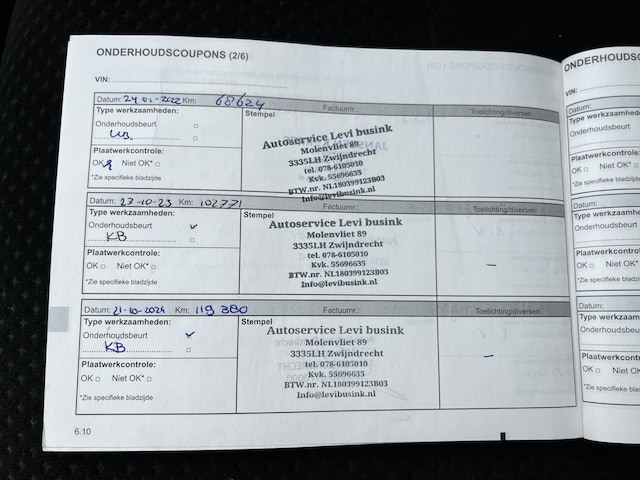 ONDERHOUDSCOUPONS (2/6)
VIN:
Datum: 24 01-2022 Km: 68624 Factuurnr. Toelichting/diversen
Type werkzaamheden: Stempel
Onderhoudsbeurt
KB
Plaatwerkcontrole:
OK Niet OK*
*Zie specifieke bladzijde
Autoservice Levi busink
Molenvliet 89
3335LH Zwijndrecht
tel. 078-6105010
Kvk. 55696635
BTW.nr. NL180399123B03
Info@levibusink.nl
Datum: 23-10-23 Km: 102771 Factuurnr. Toelichting/diversen
Type werkzaamheden: Stempel
Onderhoudsbeurt
KB
Plaatwerkcontrole:
OK Niet OK*
*Zie specifieke bladzijde
Autoservice Levi busink
Molenvliet 89
3335LH Zwijndrecht
tel. 078-6105010
Kvk. 55696635
BTW.nr. NL180399123B03
Info@levibusink.nl
Datum: 21-10-2024 Km: 119 380 Factuurnr. Toelichting/diversen
Type werkzaamheden: Stempel
Onderhoudsbeurt
KB
Plaatwerkcontrole:
OK Niet OK*
*Zie specifieke bladzijde
Autoservice Levi busink
Molenvliet 89
3335LH Zwijndrecht
tel. 078-6105010
Kvk. 55696635
BTW.nr. NL180399123B03
Info@levibusink.nl
6.10
ONDERHOUDSC
VIN:
Datum:
Type werkzaam
Onderhoudsbeurt
Plaatwerkcontrol
OK Niet OK*
*Zie specifieke bladz
Datum:
Type werkzaam
Onderhoudsbeu
Plaatwerkcontr
OK Niet O
*Zie specifieke bla
Datum:
Type werkza
Onderhoudsb
Plaatwerkcon
OK Niet
*Zie specifieke